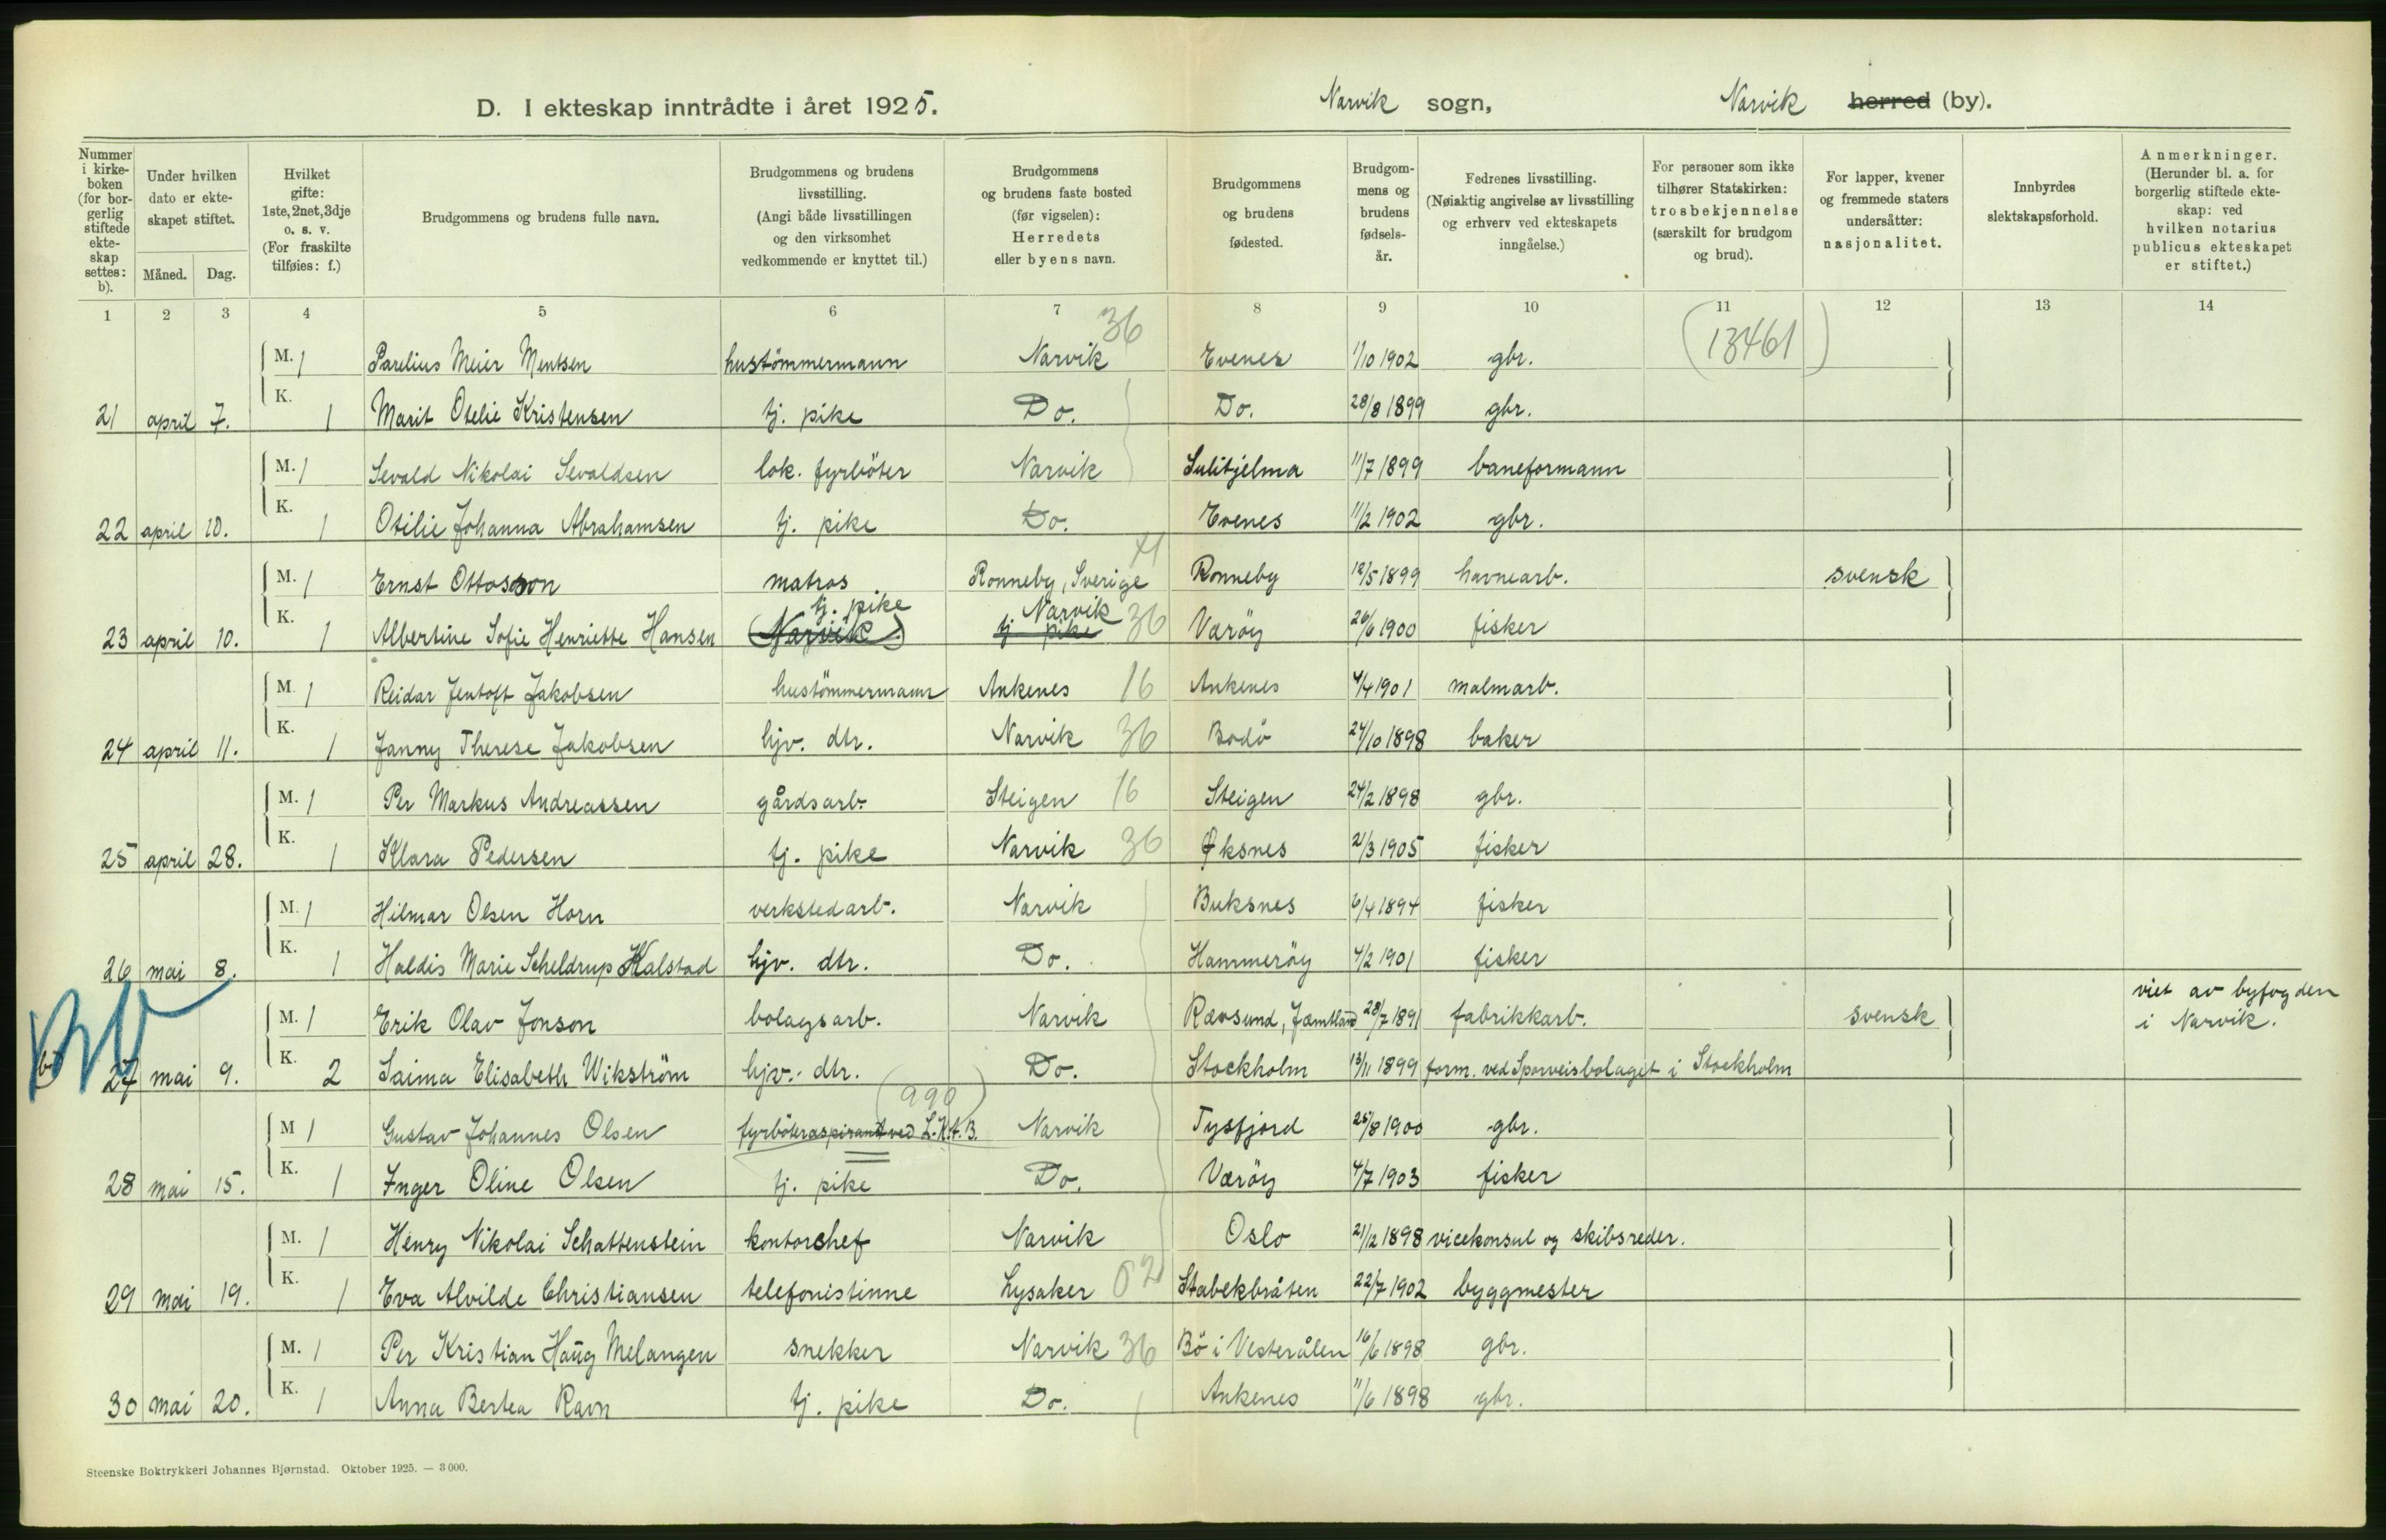 D. I ekteskap inntrådte i året 1925. Narvik sogn, Narvik herred (by).
Nummer i kirkeboken (for borgerlig stiftede ekteskap settes: b).
Under hvilken dato er ekteskapet stiftet.
Måned. Dag.
Hvilket gifte: 1ste, 2net, 3dje o. s. v. (For fraskilte tilføies: f.)
Brudgommens og brudens fulle navn.
Brudgommens og brudens livsstilling. (Angi både livsstillingen og den virksomhet vedkommende er knyttet til.)
Brudgommens og brudens faste bosted (før vigselen): Herredets eller byens navn.
Brudgommens og brudens fødested.
Brudgommens og brudens fødselsår.
Fedrenes livsstilling. (Nøiaktig angivelse av livsstilling og erhverv ved ekteskapets inngåelse.)
For personer som ikke tilhører Statskirken: trosbekjennelse (særskilt for brudgom og brud).
For lapper, kvener og fremmede staters undersåtter: nasjonalitet.
Innbyrdes slektskapsforhold.
Anmerkninger. (Herunder bl. a. for borgerlig stiftede ekteskap: ved hvilken notarius publicus ekteskapet er stiftet.)
1 2 3 4 5 6 7 8 9 10 11 12 13 14
36 (13461)
M. 1 Parelius Meier Mentsen hustömmermann Narvik Evenes 1/10 1902 gbr.
21 april 7. K. 1 Marit Otelie Kristensen tj. pike Do. Do. 28/8 1899 gbr.
M. 1 Sevald Nikolai Sevaldsen lok. fyrböter Narvik Sulitjelma 11/7 1899 baneformann
22 april 10. K. 1 Otilie Johanna Abrahamsen tj. pike Do. Evenes 11/2 1902 gbr.
M. 1 Ernst Ottosson matros Ronneby, Sverige Ronneby 12/5 1899 havnearb. svensk
tj. pike Narvik
23 april 10. K. 1 Albertine Sofie Henriette Hansen (Narvik) tj pike 36 Væröy 26/6 1900 fisker
M. 1 Reidar Jentoft Jakobsen hustömmermann Ankenes 16 Ankenes 4/4 1901 malmarb.
24 april 11. K. 1 Janny Therese Jakobsen hjv. dtr. Narvik 36 Bodö 24/10 1898 baker
M. 1 Per Markus Andreassen gårdsarb. Steigen 16 Steigen 24/2 1898 gbr.
25 april 28. K. 1 Klara Pedersen tj. pike Narvik 36 Øksnes 21/3 1905 fisker
M. 1 Hilmar Olsen Horn verkstedarb. Narvik Buksnes 6/4 1894 fisker
26 mai 8. K. 1 Haldis Marie Scheldrup Kalstad hjv. dtr. Do. Hammeröy 4/2 1901 fisker
viet av byfogden
M. 1 Erik Olav Jonson bolagsarb. Narvik Rævsund, Jæmtland 28/7 1891 fabrikkarb. svensk i Narvik.
27 mai 9. K. 2 Saima Elisabeth Wikström hjv. dtr. Do. Stockholm 13/11 1899 form. ved Sporveisbolaget i Stockholm
(990)
M 1 Gustav Johannes Olsen fyrböteraspirant ved L.K.A.B. Narvik Tysfjord 25/8 1900 gbr.
28 mai 15. K. 1 Inger Oline Olsen tj. pike Do. Væröy 4/7 1903 fisker
M. 1 Henry Nikolai Schattenstein kontorchef Narvik Oslo 21/12 1898 vicekonsul og skibsreder.
29 mai 19. K. 1 Eva Alvilde Christiansen telefonistinne Lysaker 02 Stabekbråten 22/7 1902 byggmester
M. 1 Per Kristian Haug Melangen snekker Narvik 36 Bö i Vesterålen 16/6 1898 gbr.
30 mai 20. K. 1 Anna Bertea Ravn tj. pike Do. Ankenes 11/6 1898 gbr.
Steenske Boktrykkeri Johannes Bjørnstad. Oktober 1925. — 3 000.